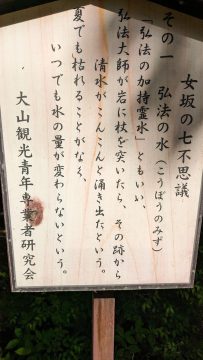 女坂の七不思議
その一 弘法の水（こうぼうのみず）
「弘法の加持霊水」ともいい、
弘法大師が岩に杖を突いたら、その跡から
清水がこんこんと湧き出たという。
夏でも枯れることがなく、
いつでも水の量が変わらないという。
大山観光青年専業者研究会